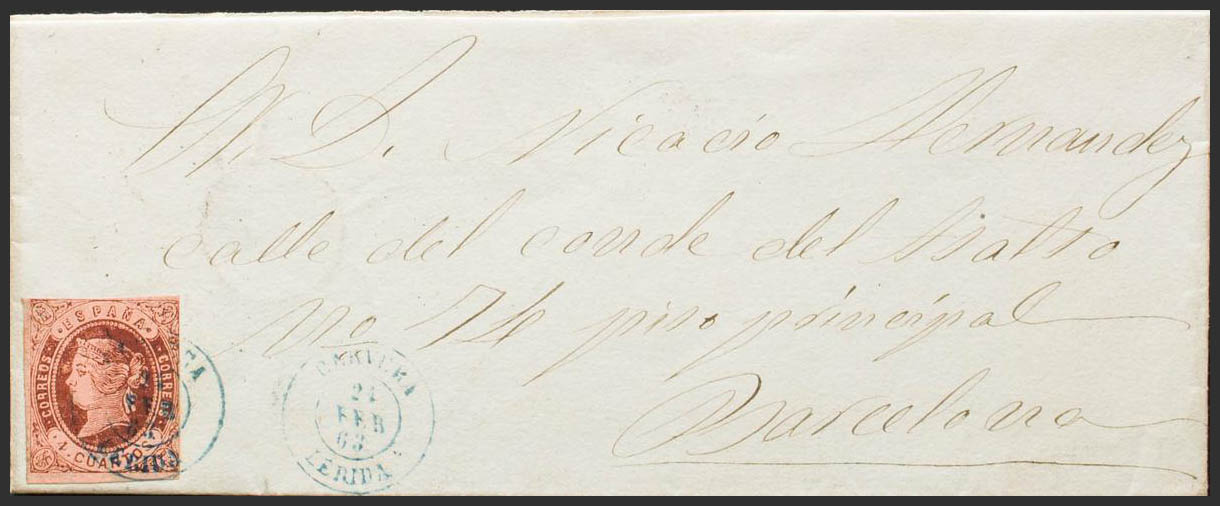 S. D. Nicacio Hernandez
calle del conde del Asalto
No 74 piso principal
Barcelona
ESPAÑA
CORREOS
CORREOS
4 CUARTOS
FEB
63
LERIDA
21
FEB
63
LERIDA